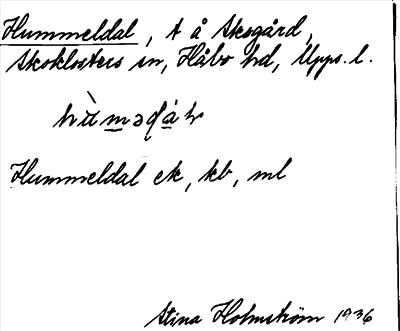 Hummeldal, t å Skogård,
Skoklosters sn, Håbo hd, Upps. l.
Hummeldal ek, kb, ml
Stina Holmström 1936